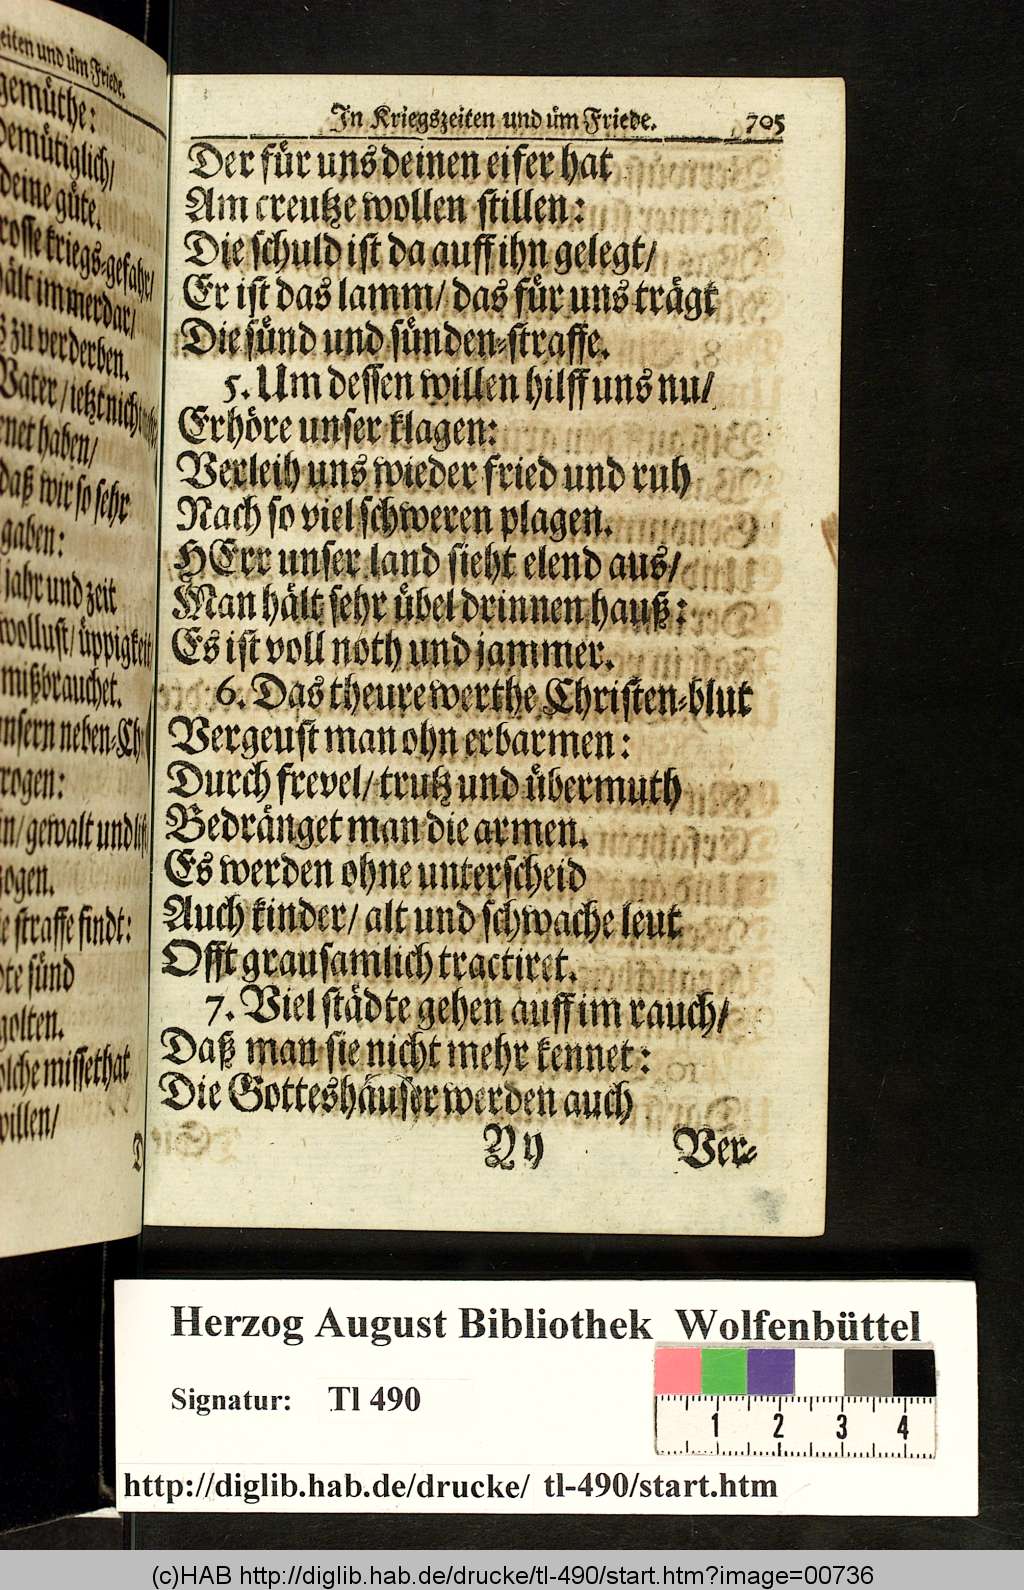 eiten und üm Friede.
gemüthe:
demütiglich/
deine güte.
rosse kriegs-gefahr/
hält immerdar/
zu verderben.
Vater/ ietzt nicht
net haben/
daß wir so sehr
gaben:
jahr und zeit
wollust/ üppigkeit
mißbrauchet.
nsern neben-Ch
rogen:
in/ gewalt und list
zogen.
e straffe findt:
te sünd
golten.
olche missethat
willen/
D
In Kriegszeiten und üm Friede. 705
Der für uns deinen eifer hat
Am creutze wollen stillen:
Die schuld ist da auff ihn gelegt/
Er ist das lamm/ das für uns trägt
Die sünd und sünden-straffe.
5. Um dessen willen hilff uns nu/
Erhöre unser klagen:
Verleih uns wieder fried und ruh
Nach so viel schweren plagen.
HErr unser land sieht elend aus/
Man hält sehr übel drinnen hauß:
Es ist voll noth und jammer.
6. Das theure werthe Christen-blut
Vergeust man ohn erbarmen:
Durch frevel/ trutz und übermuth
Bedränget man die armen.
Es werden ohne unterscheid
Auch kinder/ alt und schwache leut
Offt grausamlich tractiret.
7. Viel städte gehen auff im rauch/
Daß man sie nicht mehr kennet:
Die Gotteshäuser werden auch
Yy Ver-
Herzog August Bibliothek Wolfenbüttel
Signatur: Tl 490
1 2 3 4
http://diglib.hab.de/drucke/ tl-490/start.htm
(c)HAB http://diglib.hab.de/drucke/tl-490/start.htm?image=00736